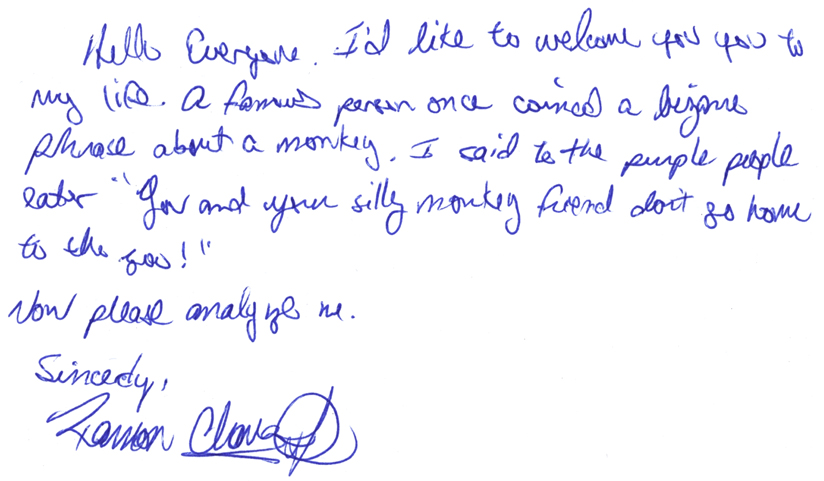 Hello Everyone. I'd like to welcome you you to
my life. A famous person once coined a bizarre
phrase about a monkey. I said to the purple people
eater "You and your silly monkey friend don't go home
to the zoo!"
Now please analyze me.
Sincerely,
Ramon